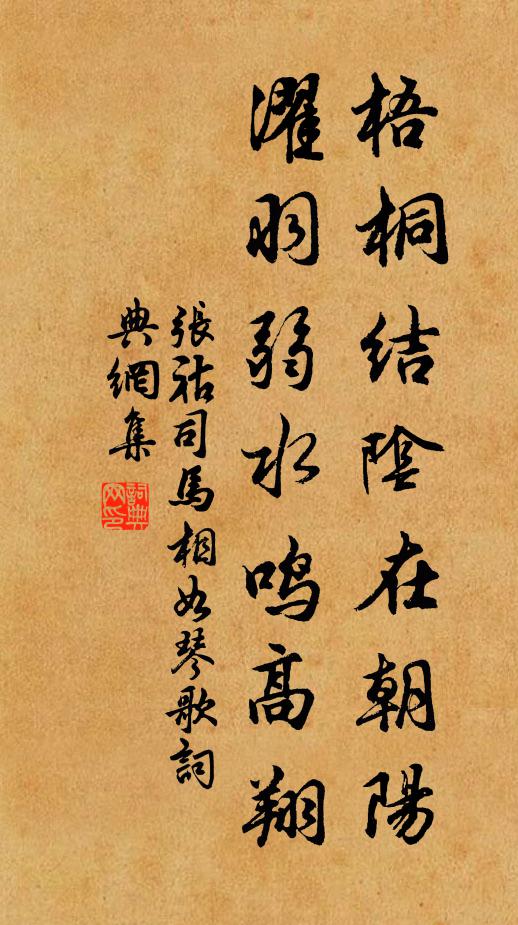 梧桐結陰在朝陽
濯羽弱水鳴高翔
張祜司馬相如琴歌詞
典網集
詞典網印